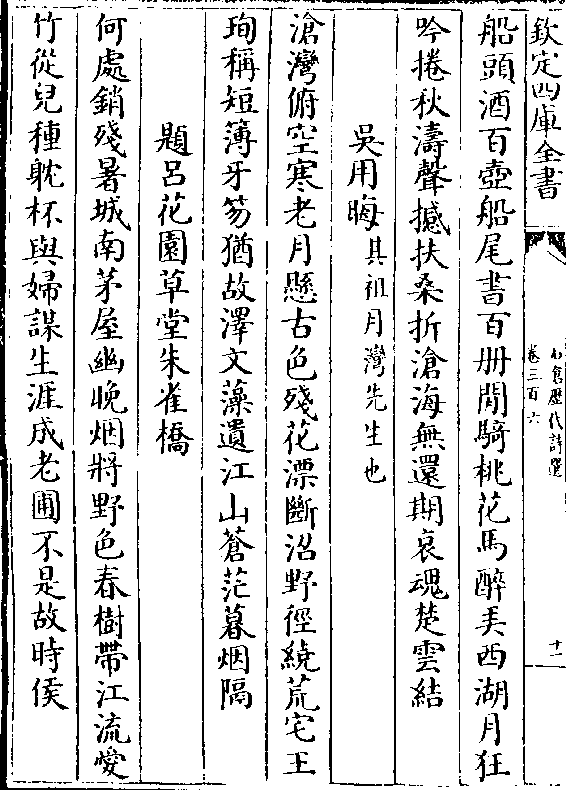 欽定四庫全書
石倉歷代詩選
卷三百六
十一
船頭酒百壺船尾書百册閒騎桃花馬醉弄西湖月狂
吟捲秋濤聲撼扶桑折滄海無還期哀魂楚雲結
吳用晦其祖月灣先生也
滄灣俯空寒老月懸古色殘花漂斷沼野徑繞荒宅王
珣稱短簿牙笏猶故澤文藻遺江山蒼茫暮烟隔
題呂花園草堂朱雀橋
何處銷殘暑城南茅屋幽晚烟將野色春樹帶江流愛
竹從兒種躭杯與婦謀生涯成老圃不是故時侯